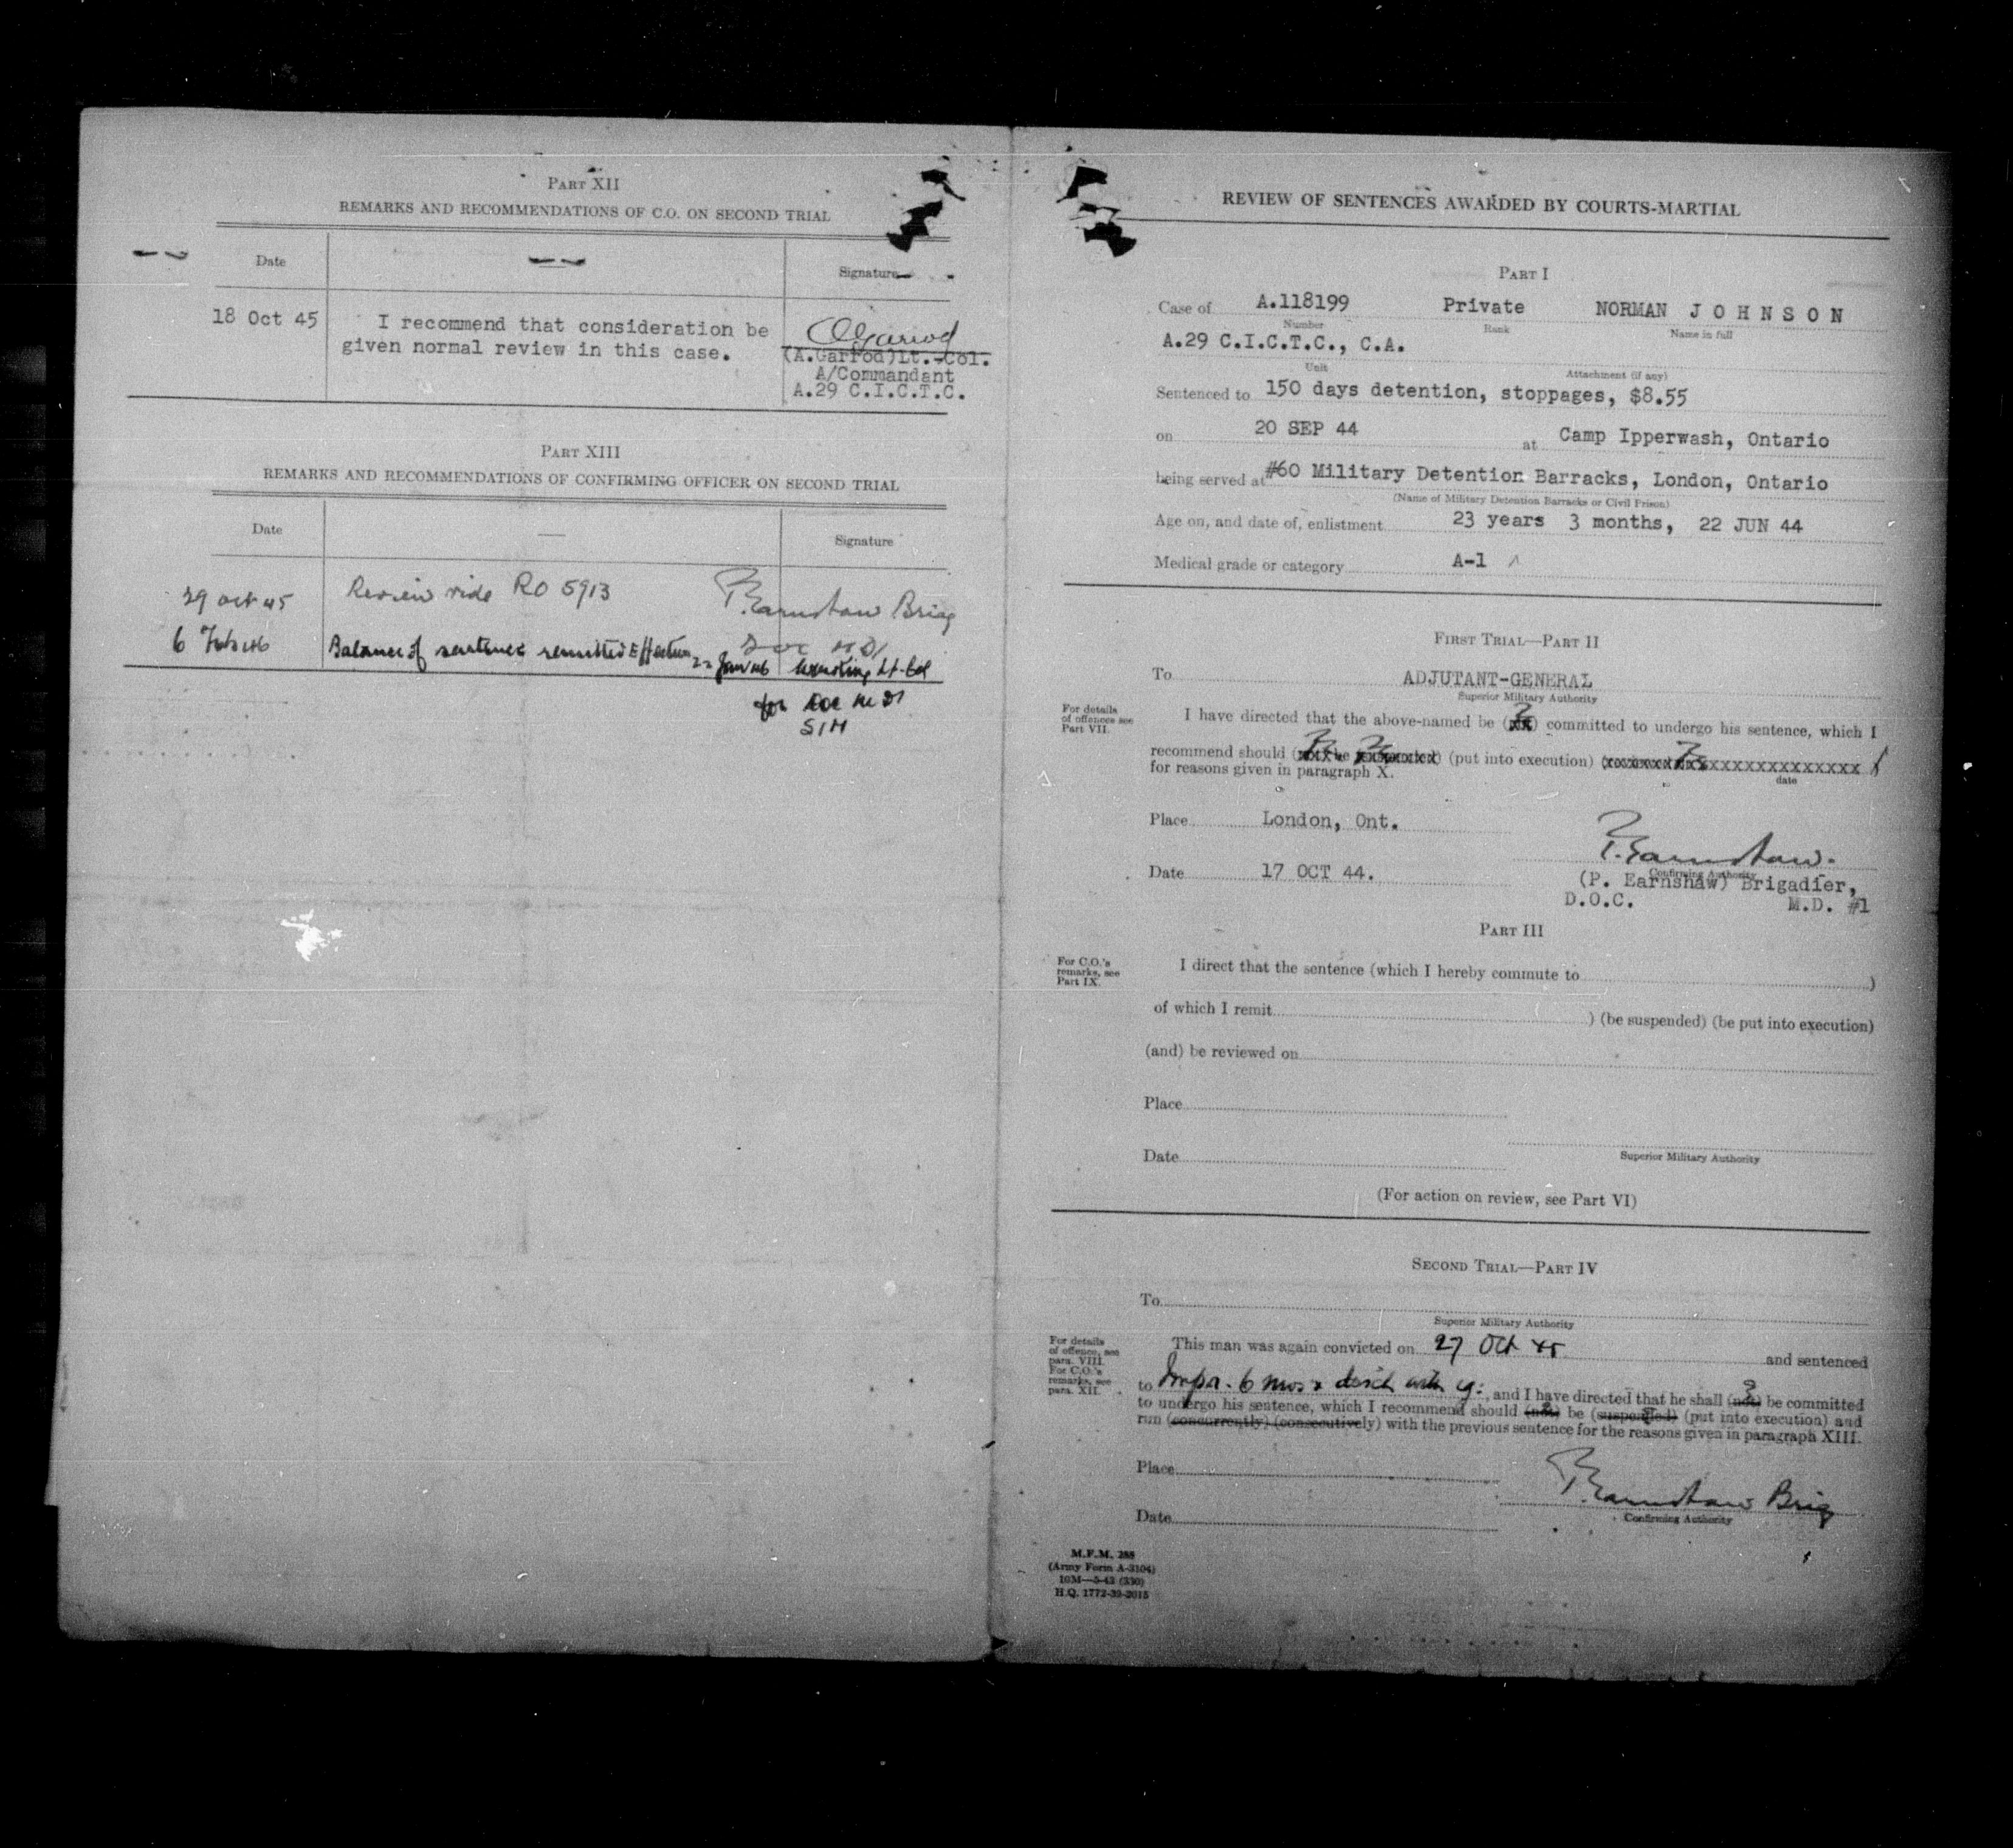 PART XII
REMARKS AND RECOMMENDATIONS OF C.O. ON SECOND TRIAL
Date
Signature
18 Oct 45
I recommend that consideration be
given normal review in this case.
(A.Garrod)Lt.-Col.
A/Commandant
A.29 C.I.C.T.C.
PART XIII
REMARKS AND RECOMMENDATIONS OF CONFIRMING OFFICER ON SECOND TRIAL
Date
Signature
29 Oct 45 Review vide RO 5913 P. Earnshaw Brig
DOC MD1
6 Feb 46 Balance of sentence remitted Effective 22 Jan 46 Lt-Col
for DOC MD1
REVIEW OF SENTENCES AWARDED BY COURTS-MARTIAL
PART I
Case of A.118199 Private NORMAN JOHNSON
Number Rank Name in full
A.29 C.I.C.T.C., C.A.
Unit Attachment (if any)
Sentenced to 150 days detention, stoppages, $8.55
on 20 SEP 44 at Camp Ipperwash, Ontario
being served at #60 Military Detention Barracks, London, Ontario
(Name of Military Detention Barracks or Civil Prison)
Age on, and date of, enlistment 23 years 3 months, 22 JUN 44
Medical grade or category A-1
FIRST TRIAL—PART II
To ADJUTANT-GENERAL
Superior Military Authority
For details
of offences see
Part VII.
I have directed that the above-named be (not) committed to undergo his sentence, which I
recommend should (not) be (suspended) (put into execution)
date
for reasons given in paragraph X.
Place London, Ont.
P. Earnshaw.
Date 17 OCT 44.
Confirming Authority
(P. Earnshaw) Brigadier,
D.O.C. M.D. #1
PART III
For C.O.'s
remarks, see
Part IX.
I direct that the sentence (which I hereby commute to )
of which I remit ) (be suspended) (be put into execution)
(and) be reviewed on
Place
Date
Superior Military Authority
(For action on review, see Part VI)
SECOND TRIAL—PART IV
To
Superior Military Authority
For details
of offence, see
para. VIII.
For C.O.'s
remarks, see
para. XII.
This man was again convicted on 27 Oct 45 and sentenced
to Impr. 6 mos & disch with ig: , and I have directed that he shall (not) be committed
to undergo his sentence, which I recommend should (not) be (suspended) (put into execution) and
run (concurrently) (consecutively) with the previous sentence for the reasons given in paragraph XIII.
Place
P. Earnshaw Brig
Date
Confirming Authority
M.F.M. 288
(Army Form A-3104)
10M—5-43 (330)
H.Q. 1772-39-2015